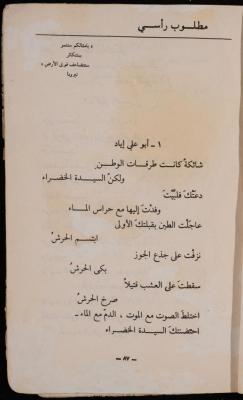 مطلوب رأسي
« بامثالكم ستنمو
ستتكاثر
ستتضاعف قوى الأرض »
نيرودا
١ - أبو علي إياد
شائكة كانت طرقات الوطنِ
ولكنّ السيدة الخضراء
دعتكَ فلبيْتَ
وفدْتَ إليها مع حراس الماء
عاجلْتَ الطين بقبلتكَ الأولى
ابتسم الحرشُ
نزفْتَ على جذع الجوز
بكى الحرشُ
سقطتَ على العشب قتيلاً
صرخ الحرشُ
اختلطَ الصوت مع الموت ، الدمّ مع الماء -
احتضنتكَ السيدة الخضراء
- ٨٧ -